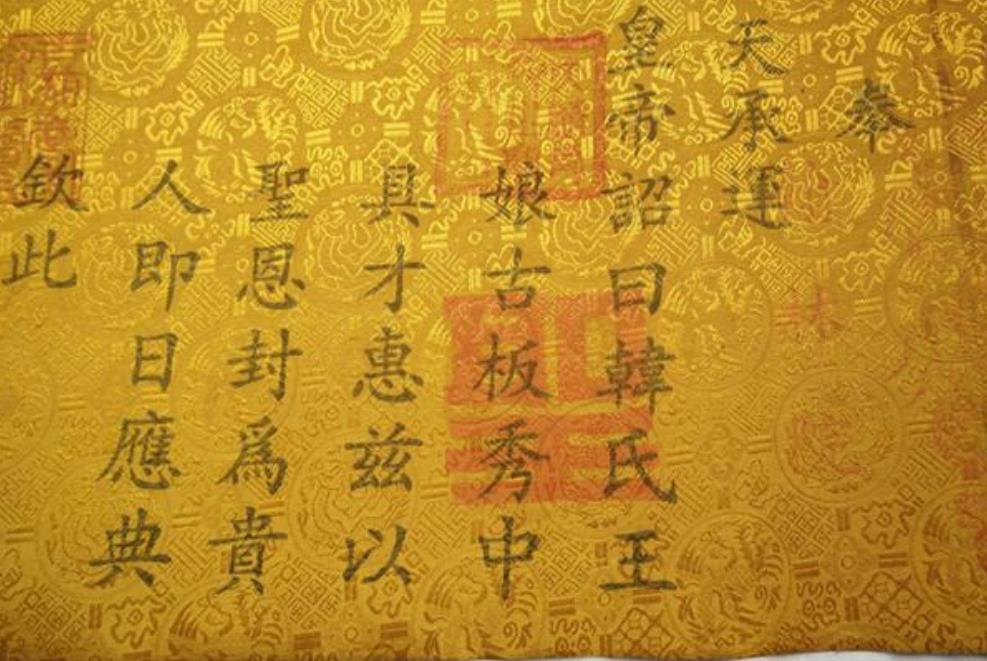 奉
天承運
皇帝詔曰韓氏王
娘古板秀中
具才惠茲以
聖恩封爲貴
人即日應典
欽此